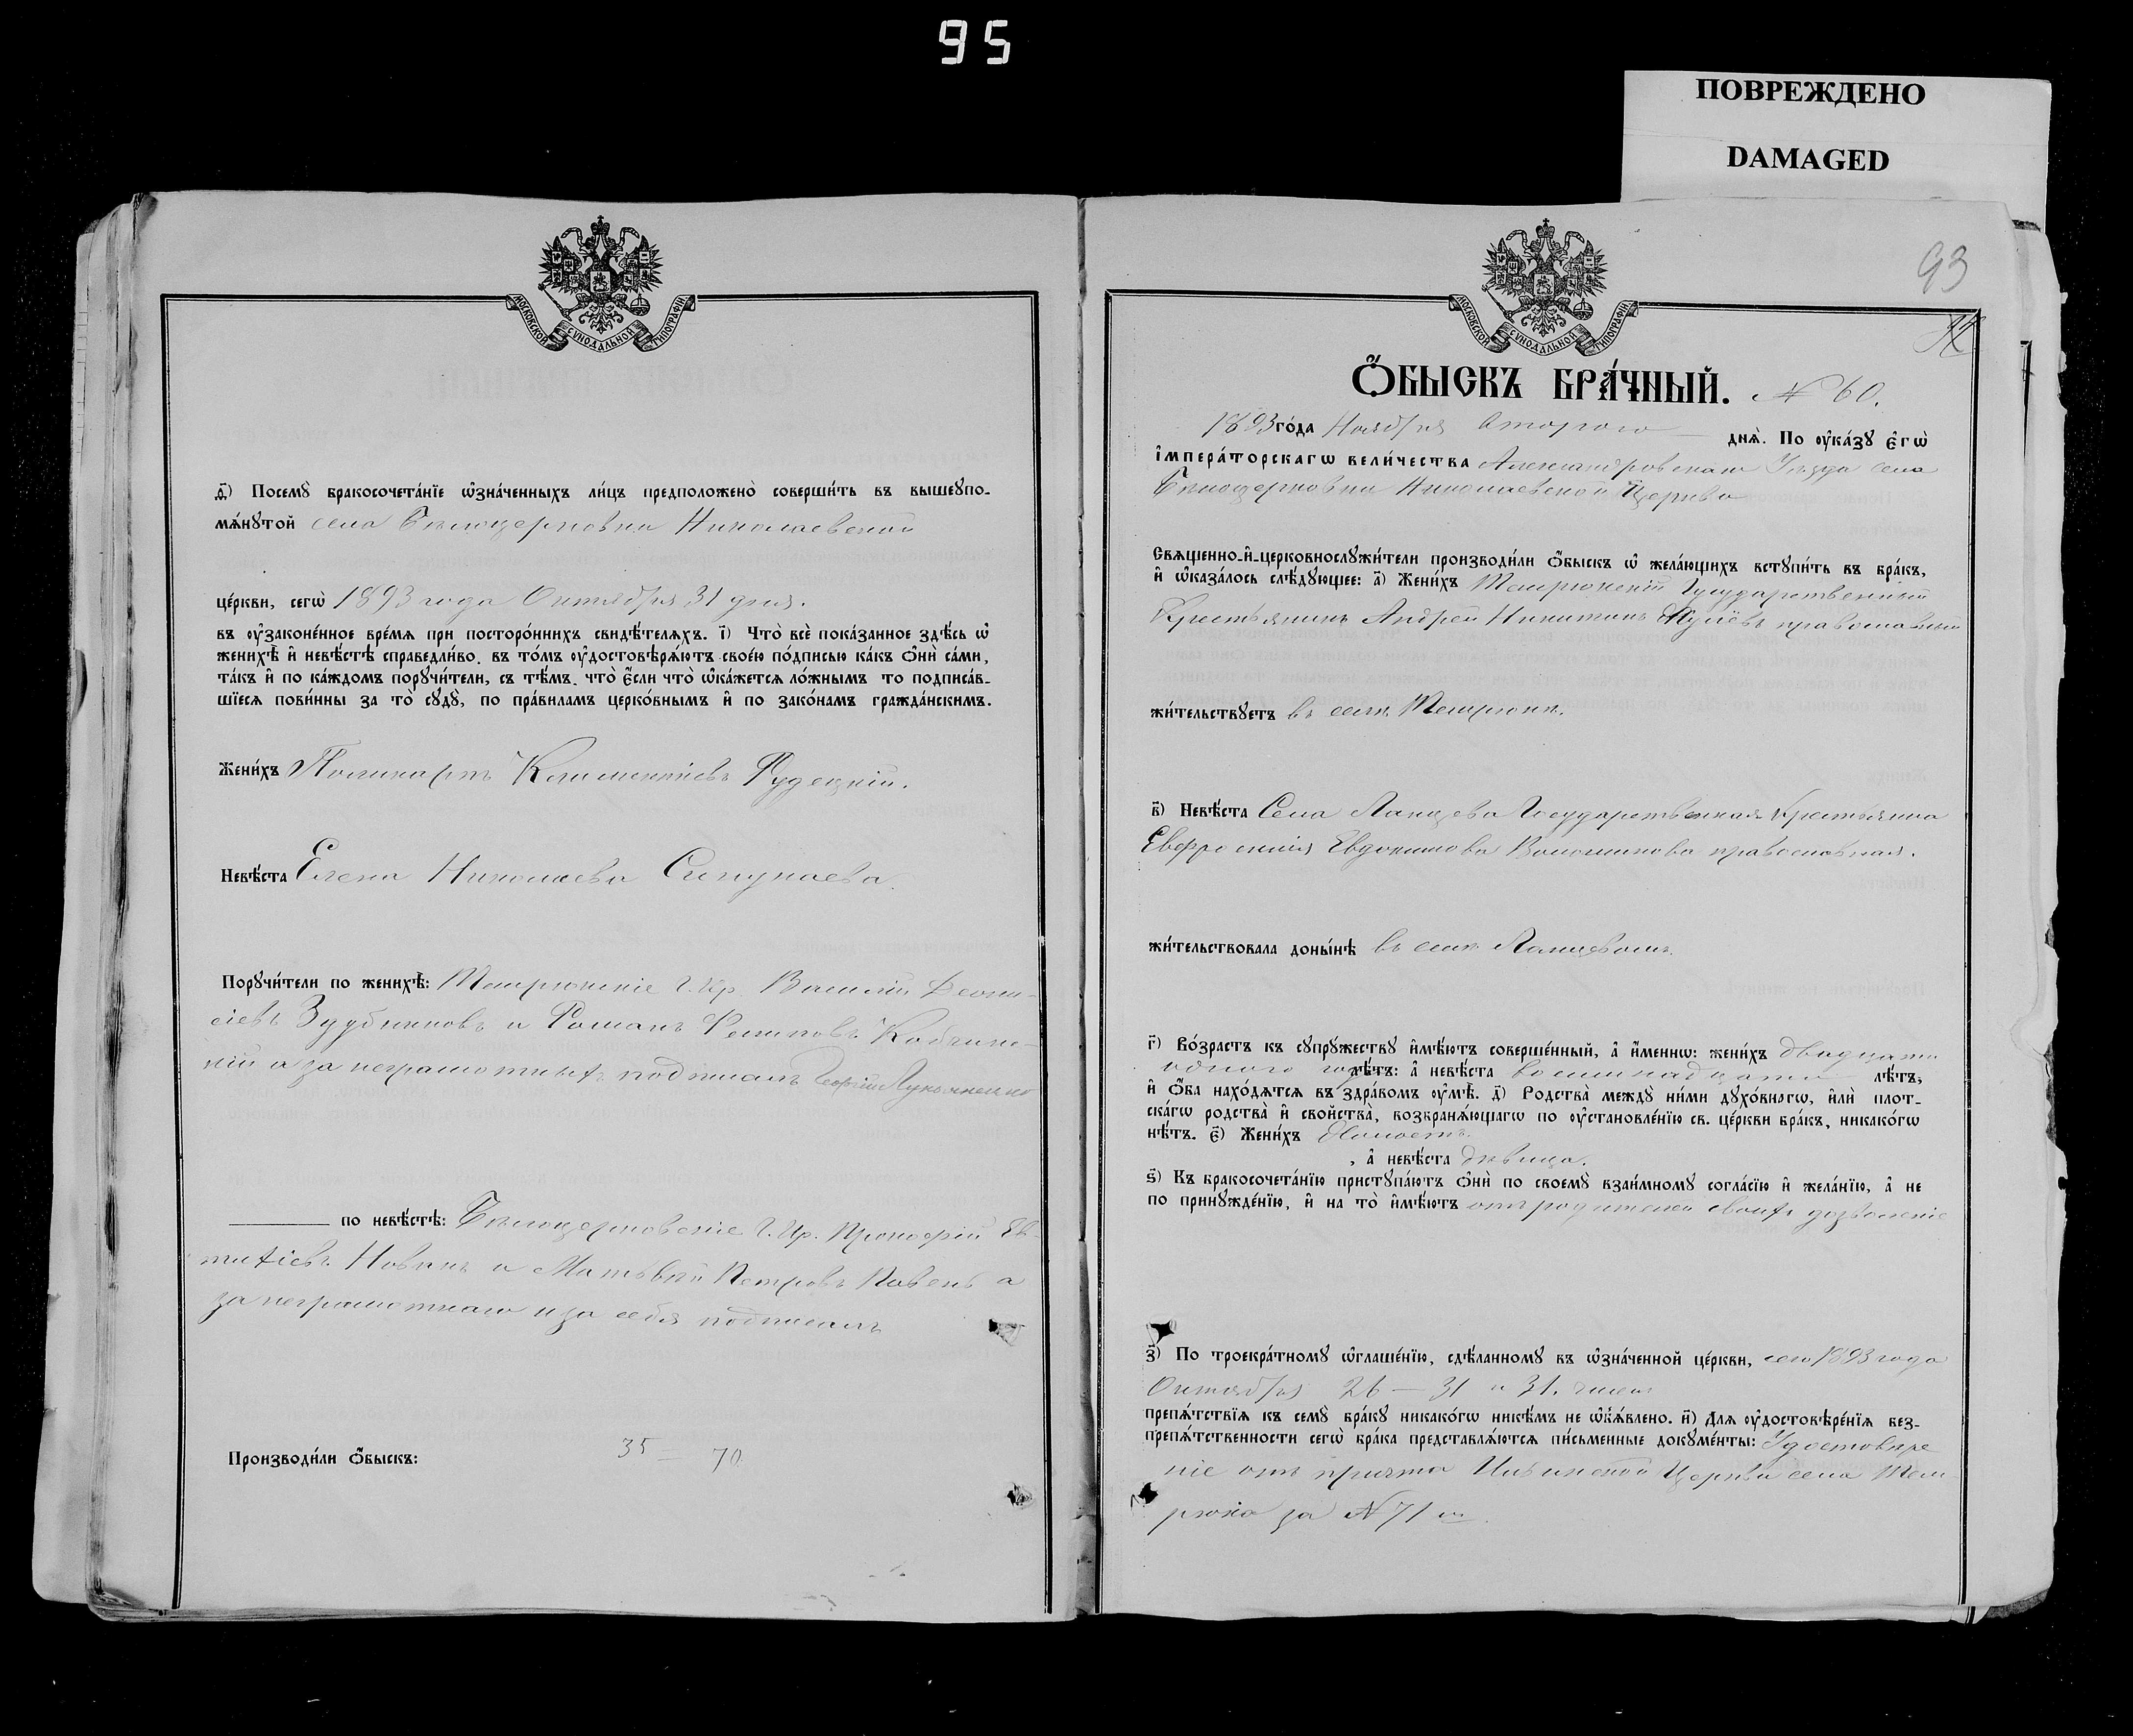 95
ПОВРЕЖДЕНО
DAMAGED
МОСКОВСКОЙ СѴНОДАЛЬНОЙ ТИПОГРАФІИ
д҃) Посемꙋ̀ бракосочета́нїе ѡ҆зна́ченныхъ ли́цъ предположено̀ соверши́ть въ вышеꙋпо-
мѧ́нꙋтой села Бѣлоцерковки Николаевской
це́ркви, сегѡ̀ 1893 года Октября 31 дня.
въ ᲂу҆законе́нное вре́мѧ при посторо́ннихъ свидѣ́телѧхъ. і҃) Что̀ всѐ пока́занное здѣ́сь ѡ҆
женихѣ̀ и҆ невѣ́стѣ справедли́во, въ то́мъ ᲂу҆достовѣрѧ́ютъ свое́ю по́дписью ка́къ ѻ҆нѝ са́ми,
та́къ и҆ по ка́ждомъ порꙋчи́тели, съ тѣ́мъ, что̀ є҆́сли что̀ ѡ҆ка́жетсѧ ло́жнымъ то подписа́в-
шїесѧ пови́нны за то̀ сꙋдꙋ̀, по пра́виламъ церко́внымъ и҆ по зако́намъ гражда́нскимъ.
Жени́хъ Поликарпъ Климентіевъ Рудецкій.
Невѣ́ста Елена Николаева
Порꙋчи́тели по женихѣ̀: Темрюкскіе Г. Кр. Василій Деони-
сіевъ Зуубниковъ и Романъ Филиповъ
кій а за неграмотныхъ подписалъ Георгій Лукьяненко
по невѣ́стѣ: Бѣлоцерковскіе Г. Кр. Прокофій Ев-
тихіевъ Новакъ и Матвѣй Петровъ а
за неграмотнаго и за себя подписалъ
Производи́ли ѻ҆́быскъ:
35 — 70.
МОСКОВСКОЙ СѴНОДАЛЬНОЙ ТИПОГРАФІИ
93
Ѻ҆́БЫСКЪ БРА́ЧНЫЙ. № 60.
1893 го́да Ноября втораго днѧ̀. По ᲂу҆ка́зꙋ є҆гѡ̀
і҆мпера́торскагѡ вели́чества Александровскаго Уѣзда села
Бѣлоцерковки Николаевской Церкви
Свѧще́нно-и҆-церковнослꙋжи́тели производи́ли ѻ҆́быскъ ѡ҆ жела́ющихъ встꙋпи́ть въ бра́къ,
и҆ ѡ҆каза́лось слѣ́дꙋющее: а҃) Жени́хъ Темрюкскій Государственный
Крестьянинъ Андрей Никитинъ православный
жи́тельствꙋетъ въ селѣ Темрюкѣ.
в҃) Невѣ́ста Села Ланцева Государственная Крестьянка
Евфросинія Евдокимова Волошинова православная.
жи́тельствовала доны́нѣ въ селѣ Ланцевомъ.
г҃) Во́зрастъ къ сꙋпрꙋ́жествꙋ и҆мѣ́ютъ соверше́нный, а҆ и҆́меннѡ: жени́хъ двадцати
одного года лѣ́тъ: а҆ невѣ́ста восемнадцати лѣ́тъ,
и҆ ѻ҆́ба нахо́дѧтсѧ въ здра́вомъ ᲂу҆мѣ̀. д҃) Родства̀ междꙋ̀ ни́ми дꙋхо́внагѡ, и҆лѝ плот-
ска́гѡ родства̀ и҆ свойства̀, возбранѧ́ющагѡ по ᲂу҆становле́нїю св. це́ркви бра́къ, никако́гѡ
нѣ́тъ. є҃) Жени́хъ Холостъ.
, а҆ невѣ́ста дѣвица.
ѕ҃) Къ бракосочета́нїю пристꙋпа́ютъ ѻ҆нѝ по своемꙋ̀ взаи́мномꙋ согла́сїю и҆ жела́нїю, а҆ не
по принꙋжде́нїю, и҆ на то̀ и҆мѣ́ютъ отъ родителей своихъ дозволеніе
з҃) По троекра́тномꙋ ѡ҆глаше́нїю, сдѣ́ланномꙋ въ ѡ҆зна́ченной це́ркви, сего 1893 года
Октября 26 — 31 и 31. чиселъ
препѧ́тствїѧ къ семꙋ̀ бра́кꙋ никако́гѡ никѣ́мъ не ѡ҆б̾ѧ́влено. и҃) Длѧ ᲂу҆достовѣре́нїѧ без-
препѧ́тственности сегѡ̀ бра́ка представлѧ́ютсѧ пи́сьменные докꙋме́нты: Удостовѣре
ніе отъ причта Ильинской Церкви села Тем
рюка за № 71 м